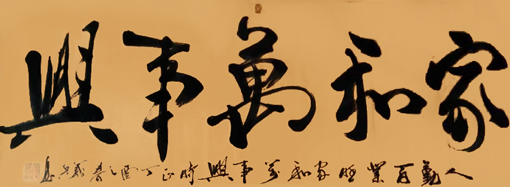 家和萬事興
人勤百業旺家和萬事興時正丁酉